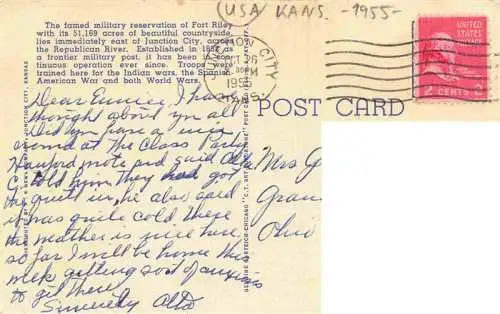 (USA) KANS. -1955-
The famed military reservation of Fort Riley
with its 51,169 acres of beautiful countryside,
lies immediately east of Junction City, across
the Republican River. Established in 1852 as
a frontier military post, it has been in con-
tinuous operation ever since. Troops were
trained here for the Indian wars, the Spanish-
American War and both World Wars.
CITY
PM
KANS.
2 CENTS 2
POST CARD
Dear Eunice, I have
thought about you all
Did you have a nice
crowd at The Class Party
Hanford wrote and said
told him They had got
he quilt in, he also said
it was quite cold There
The weather is nice here
so far I will be home this
week getting sort of anxious
to get there
Sincerely Alta
Mrs G
Gran
Ohio
JUNCTION CITY, KANSAS
GENUINE CURTEICH-CHICAGO "C.T. ART-COLORTONE" POST CARD